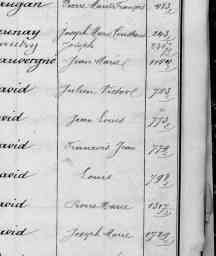 Pierre Marie François 483
Joseph Marie 243
Joseph
auvergne Jean Marie
avid Julien Victor 703
avid Jean Louis 773
avid François Jean 779
avid Louis 792
avid Pierre Marie 1317
avid Joseph Marie 1729